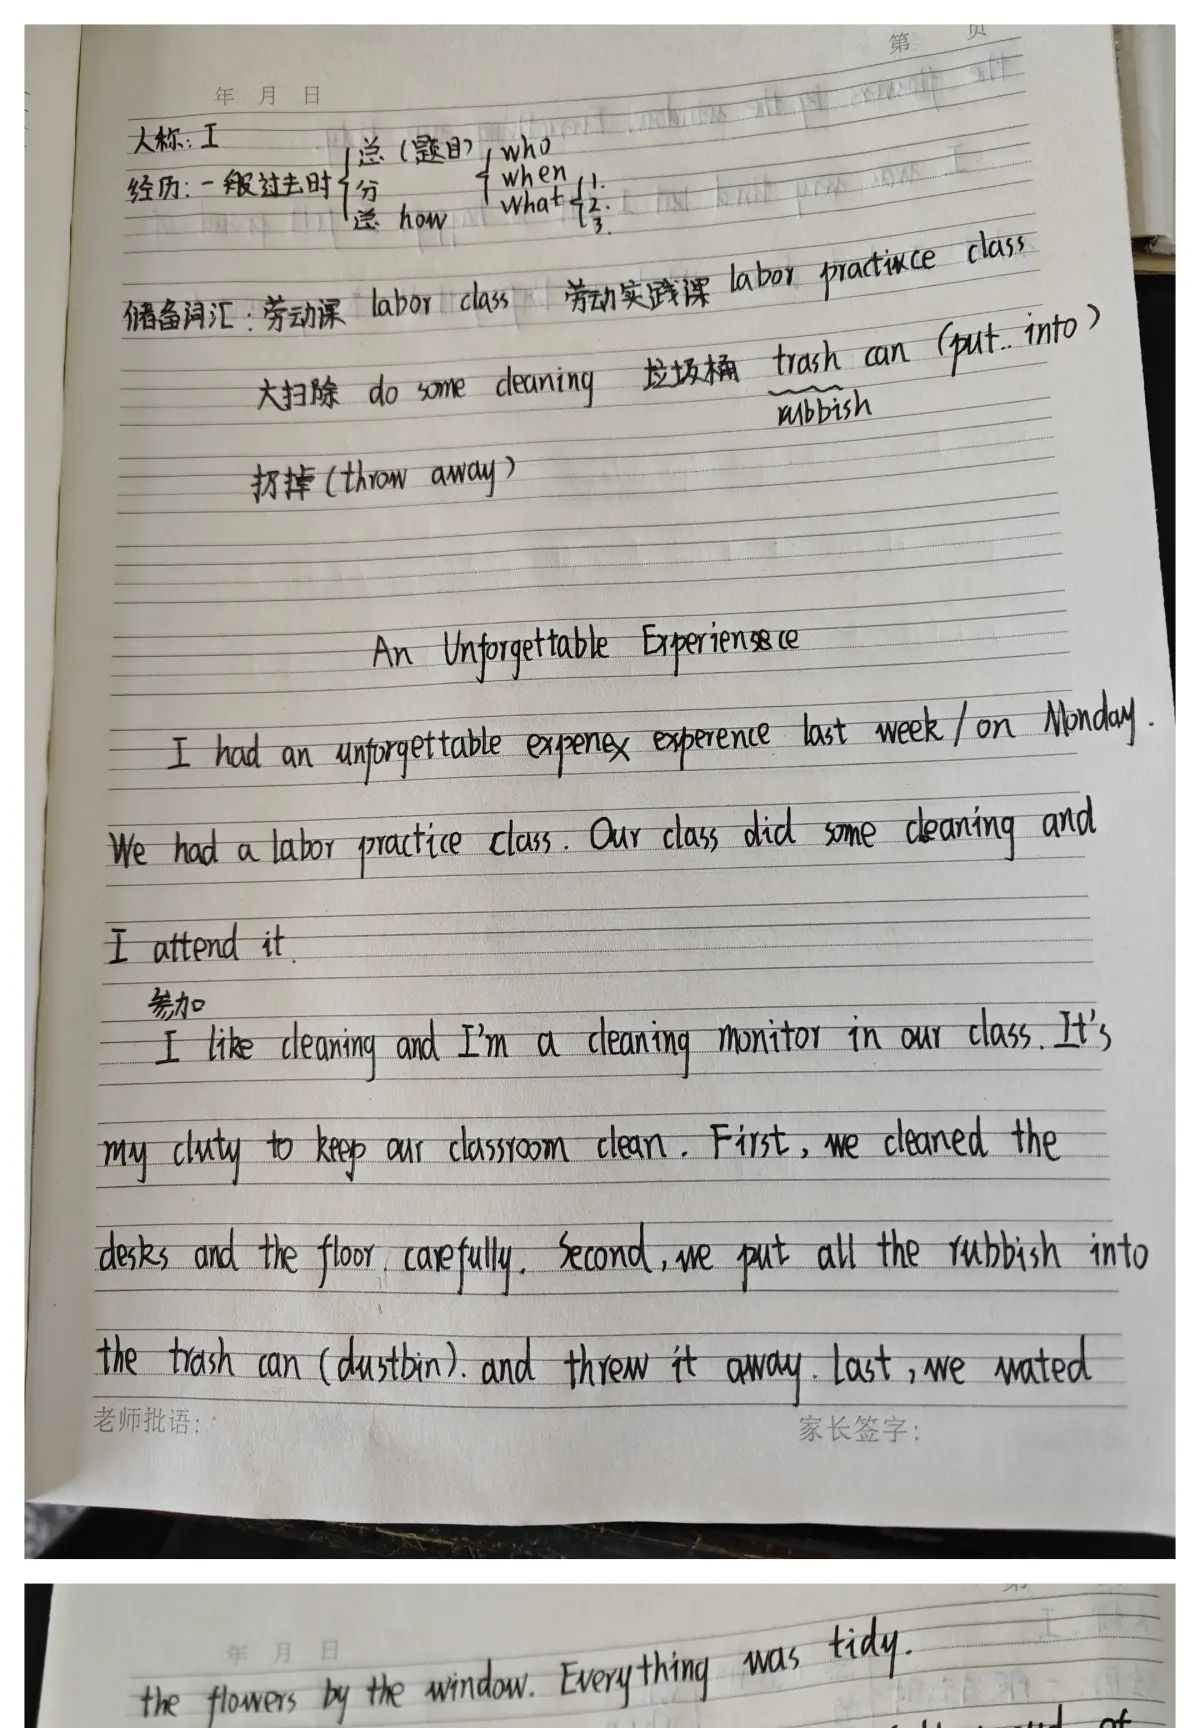 第 页
年 月 日
人称: I
经历: 一般过去时 总 (题目) who
分 when
总 how what 1.
2.
3.
储备词汇: 劳动课 labor class 劳动实践课 labor practice class
大扫除 do some cleaning 垃圾桶 trash can (put.. into)
rubbish
扔掉 (throw away)
An Unforgettable Experience
I had an unforgettable experence last week / on Monday.
We had a labor practice class. Our class did some cleaning and
I attend it.
参加
I like cleaning and I'm a cleaning monitor in our class. It's
my duty to keep our classroom clean. First, we cleaned the
desks and the floor carefully. Second, we put all the rubbish into
the trash can (dustbin). and threw it away. Last, we wated
老师批语: 家长签字:
年 月 日
the flowers by the window. Everything was tidy.
of